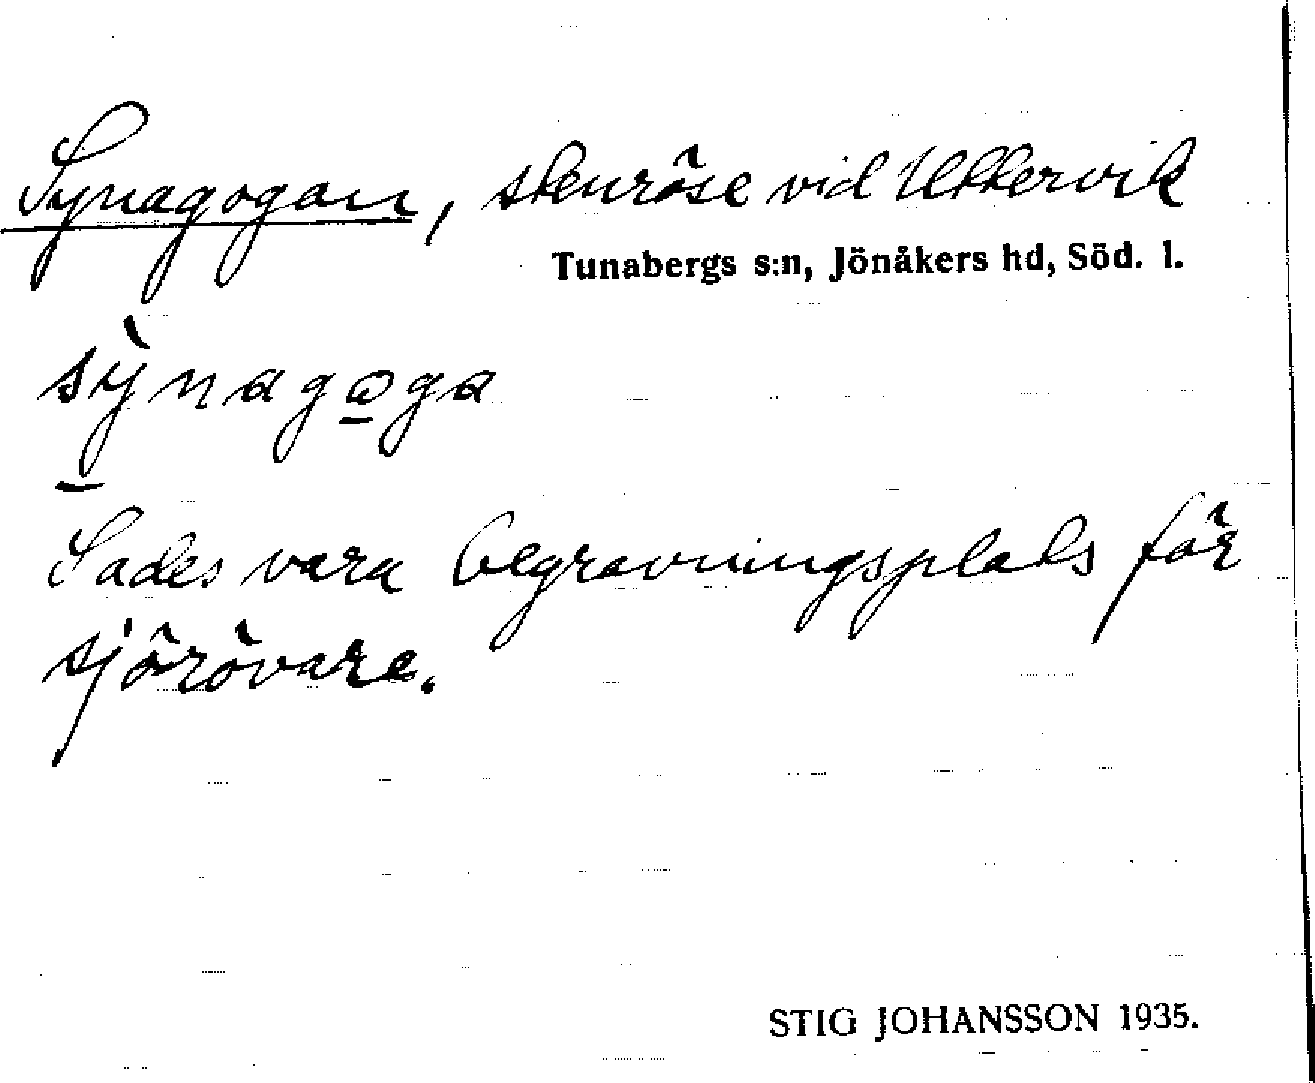 Synagogan, stenröse vid Uttervik
Tunabergs s:n, Jönåkers hd, Söd. l.
sỳnagoga
Sades vara begravningsplats för
sjörövare.
STIG JOHANSSON 1935.